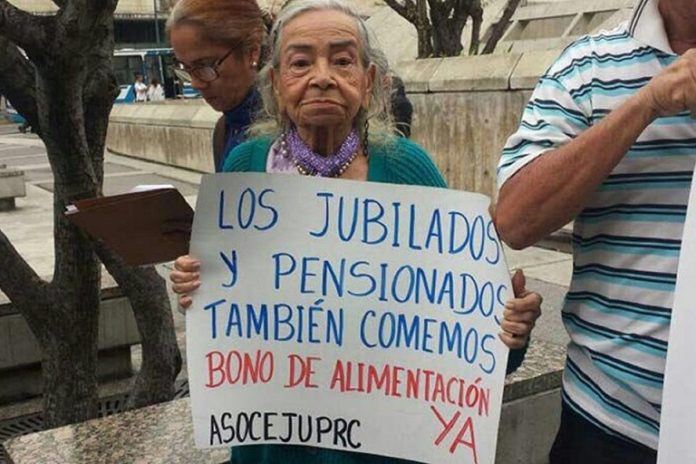 LOS JUBILADOS
Y PENSIONADOS
TAMBIÉN COMEMOS
BONO DE ALIMENTACIÓN
YA
ASOCEJUPRC